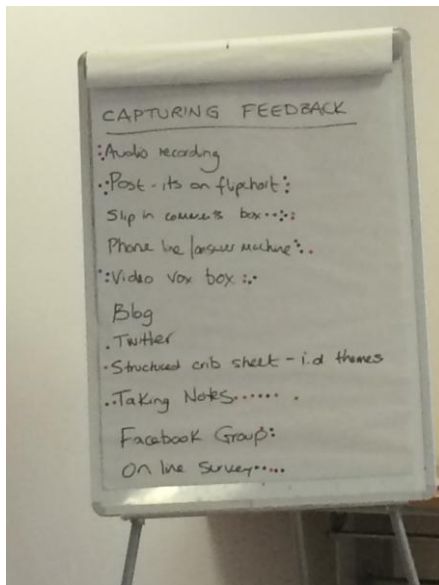 CAPTURING FEEDBACK
Audio recording
Post-its on flipchart
Slip in comments box
Phone line/answer machine
Video vox box
Blog
Twitter
Structured crib sheet - i.d themes
Taking Notes
Facebook Group
On line survey